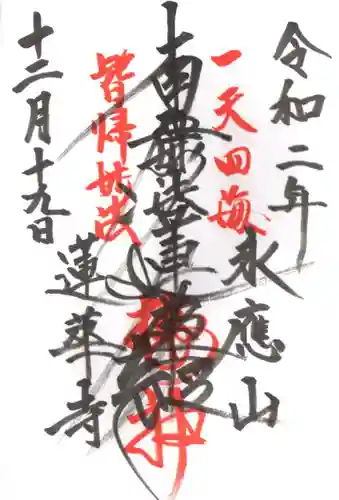 令和二年
永應山
一天四海
南無妙法蓮華経
皆帰妙法
蓮華寺
十二月十九日